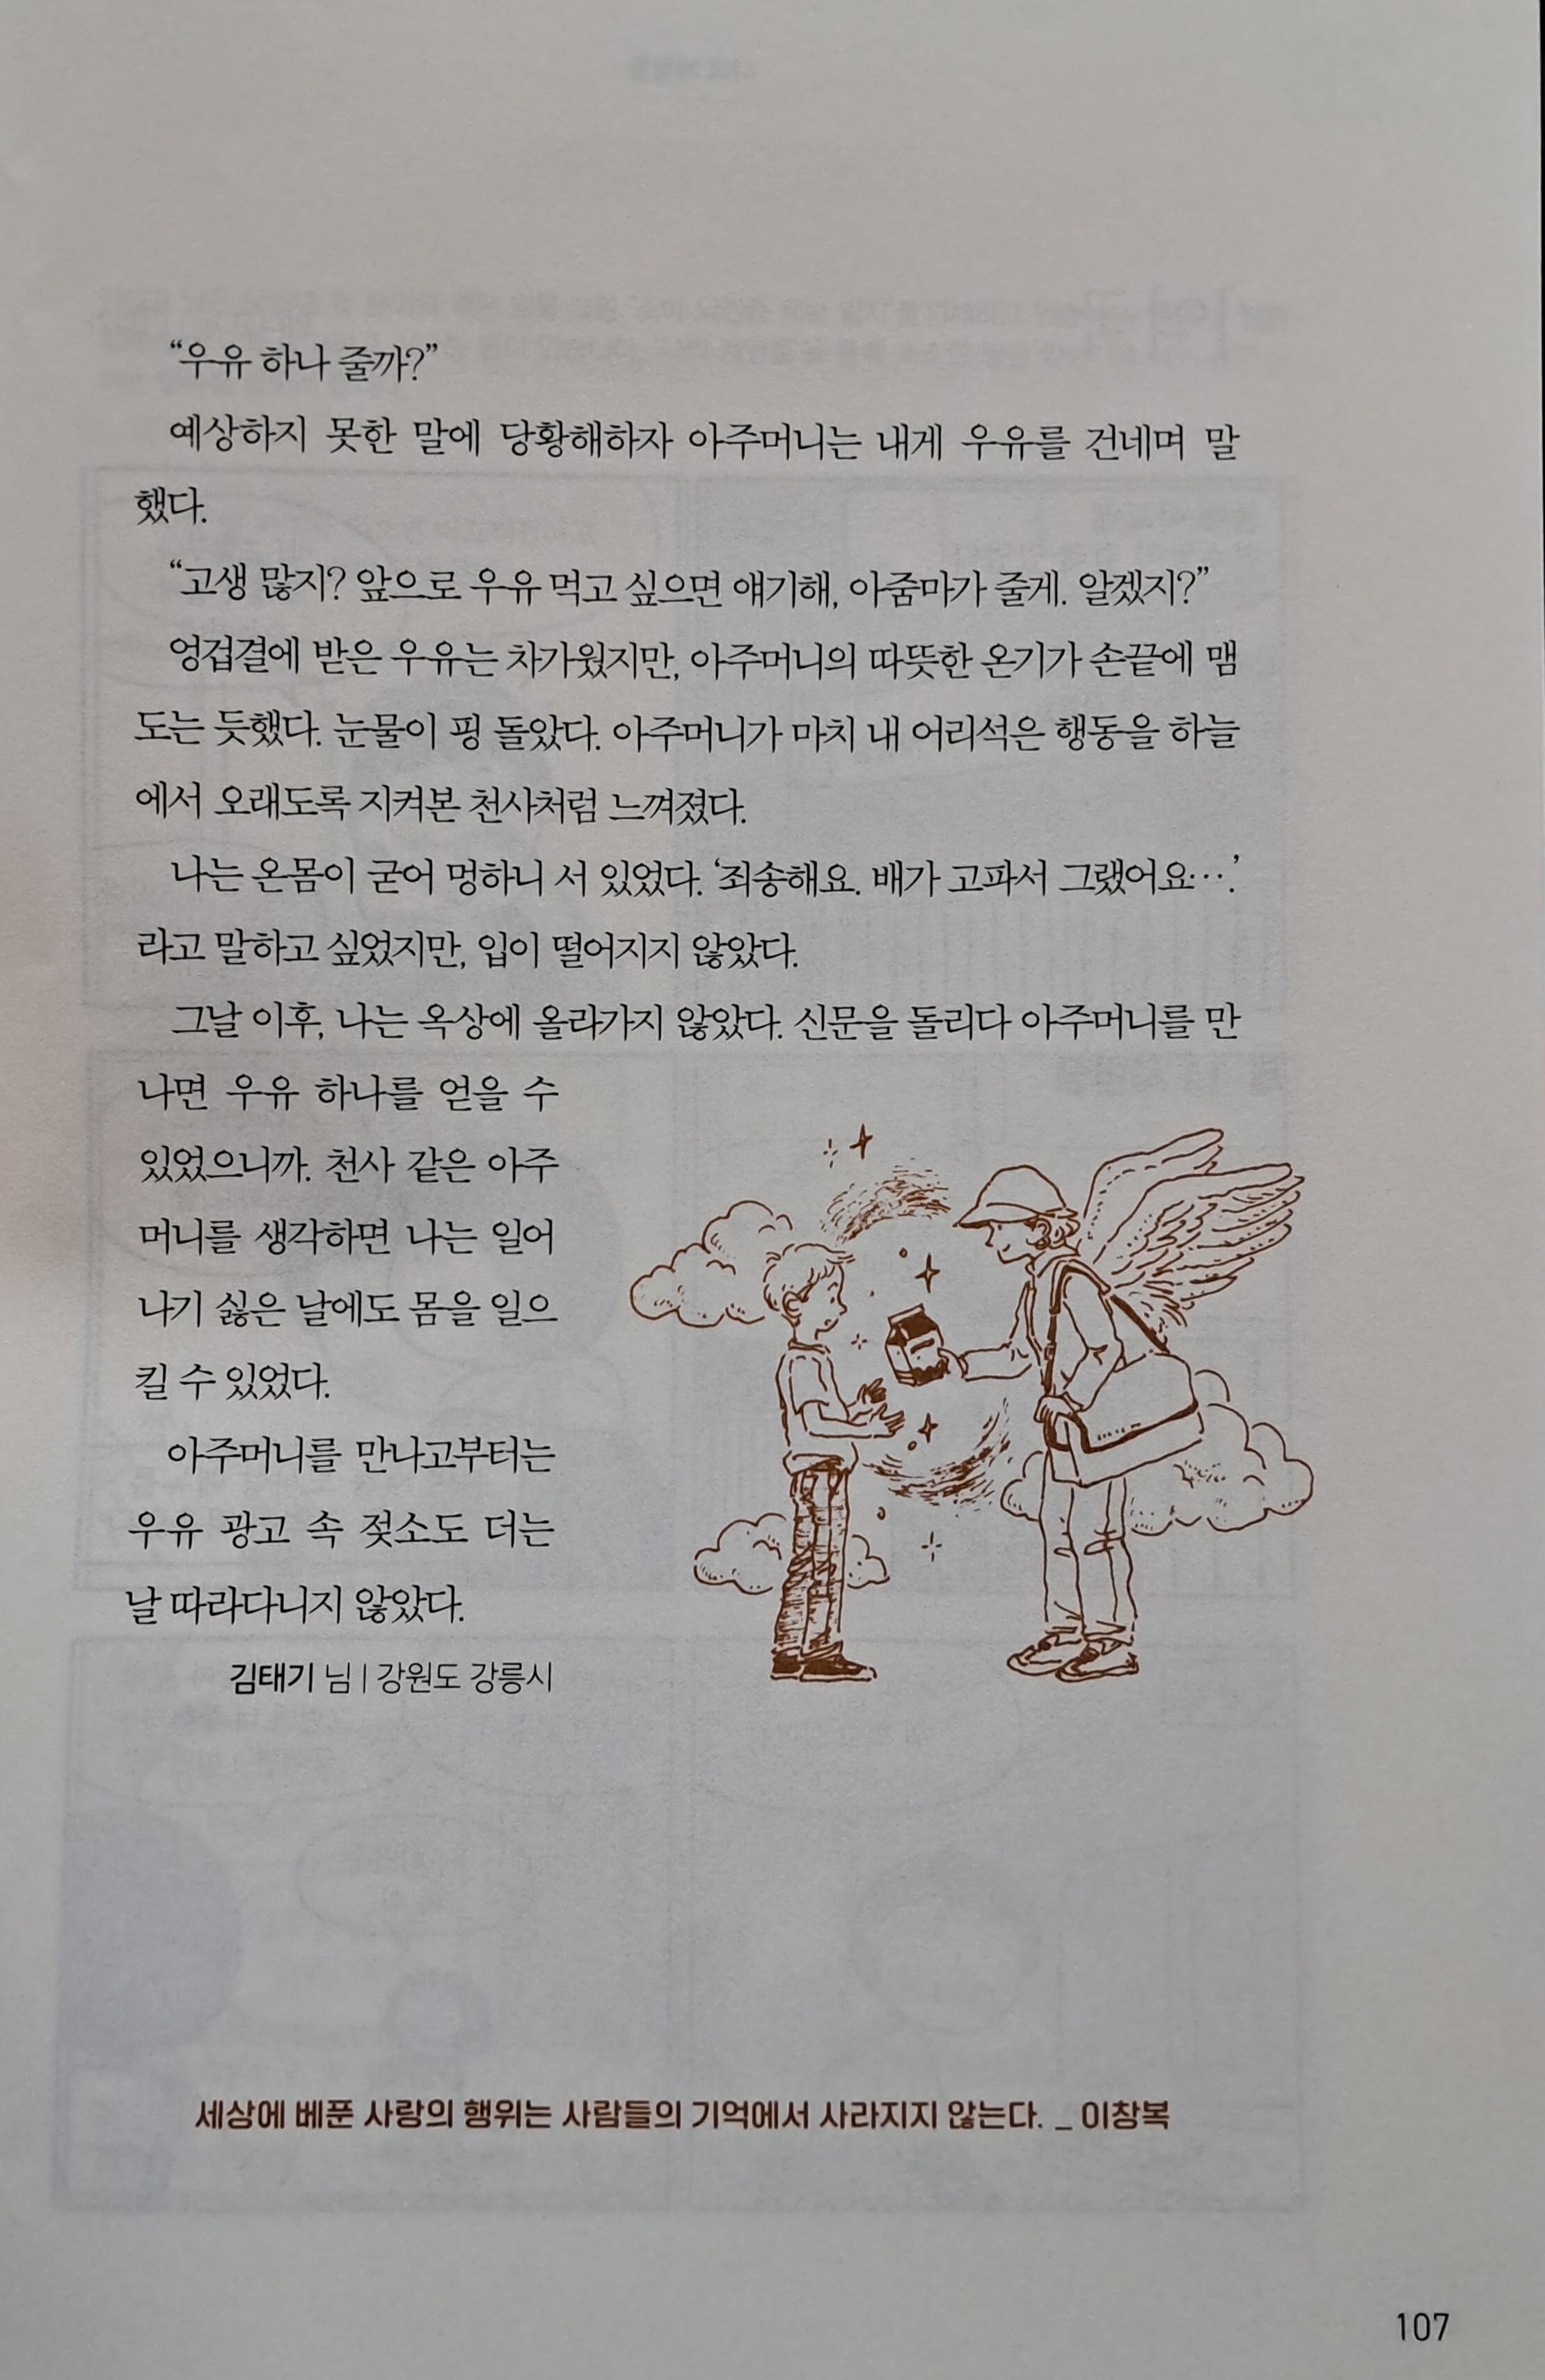 “우유 하나 줄까?”
예상하지 못한 말에 당황해하자 아주머니는 내게 우유를 건네며 말
했다.
“고생 많지? 앞으로 우유 먹고 싶으면 얘기해, 아줌마가 줄게. 알겠지?”
엉겁결에 받은 우유는 차가웠지만, 아주머니의 따뜻한 온기가 손끝에 맴
도는 듯했다. 눈물이 핑 돌았다. 아주머니가 마치 내 어리석은 행동을 하늘
에서 오래도록 지켜본 천사처럼 느껴졌다.
나는 온몸이 굳어 멍하니 서 있었다. ‘죄송해요. 배가 고파서 그랬어요….’
라고 말하고 싶었지만, 입이 떨어지지 않았다.
그날 이후, 나는 옥상에 올라가지 않았다. 신문을 돌리다 아주머니를 만
나면 우유 하나를 얻을 수
있었으니까. 천사 같은 아주
머니를 생각하면 나는 일어
나기 싫은 날에도 몸을 일으
킬 수 있었다.
아주머니를 만나고부터는
우유 광고 속 젖소도 더는
날 따라다니지 않았다.
김태기 님 | 강원도 강릉시
세상에 베푼 사랑의 행위는 사람들의 기억에서 사라지지 않는다. _ 이창복
107